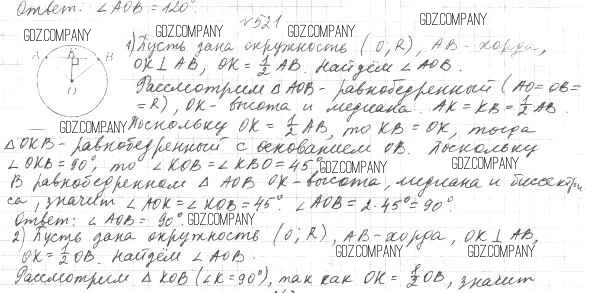 Ответ: ∠AOB = 120°.
№521
GDZ.COMPANY
GDZ.COMPANY
GDZ.COMPANY
GDZ.COMPANY
1) Пусть дана окружность (O, R), AB - хорда,
A K B
OK⊥AB, OK = 1/2 AB. Найдём ∠AOB.
O
Рассмотрим △AOB - равнобедренный (AO = OB =
= R), OK - высота и медиана. AK = KB = 1/2 AB.
GDZ.COMPANY
Поскольку OK = 1/2 AB, то KB = OK, тогда
△OKB - равнобедренный с основанием OB. Поскольку
∠OKB = 90°, то ∠KOB = ∠KBO = 45°
GDZ.COMPANY
GDZ.COMPANY
В равнобедренном △AOB OK - высота, медиана и биссектри
са, значит ∠AOK = ∠KOB = 45°. ∠AOB = 2·45° = 90°.
Ответ: ∠AOB = 90°.
GDZ.COMPANY
2) Пусть дана окружность (O; R), AB - хорда, OK⊥AB,
OK = 1/2 OB. Найдём ∠AOB.
GDZ.COMPANY
GDZ.COMPANY
Рассмотрим △KOB (∠K = 90°), так как OK = 1/2 OB, значит